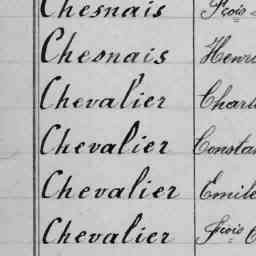 Chesnais Frois
Chesnais Henri
Chevalier Charl
Chevalier Constan
Chevalier Emile
Chevalier Frois